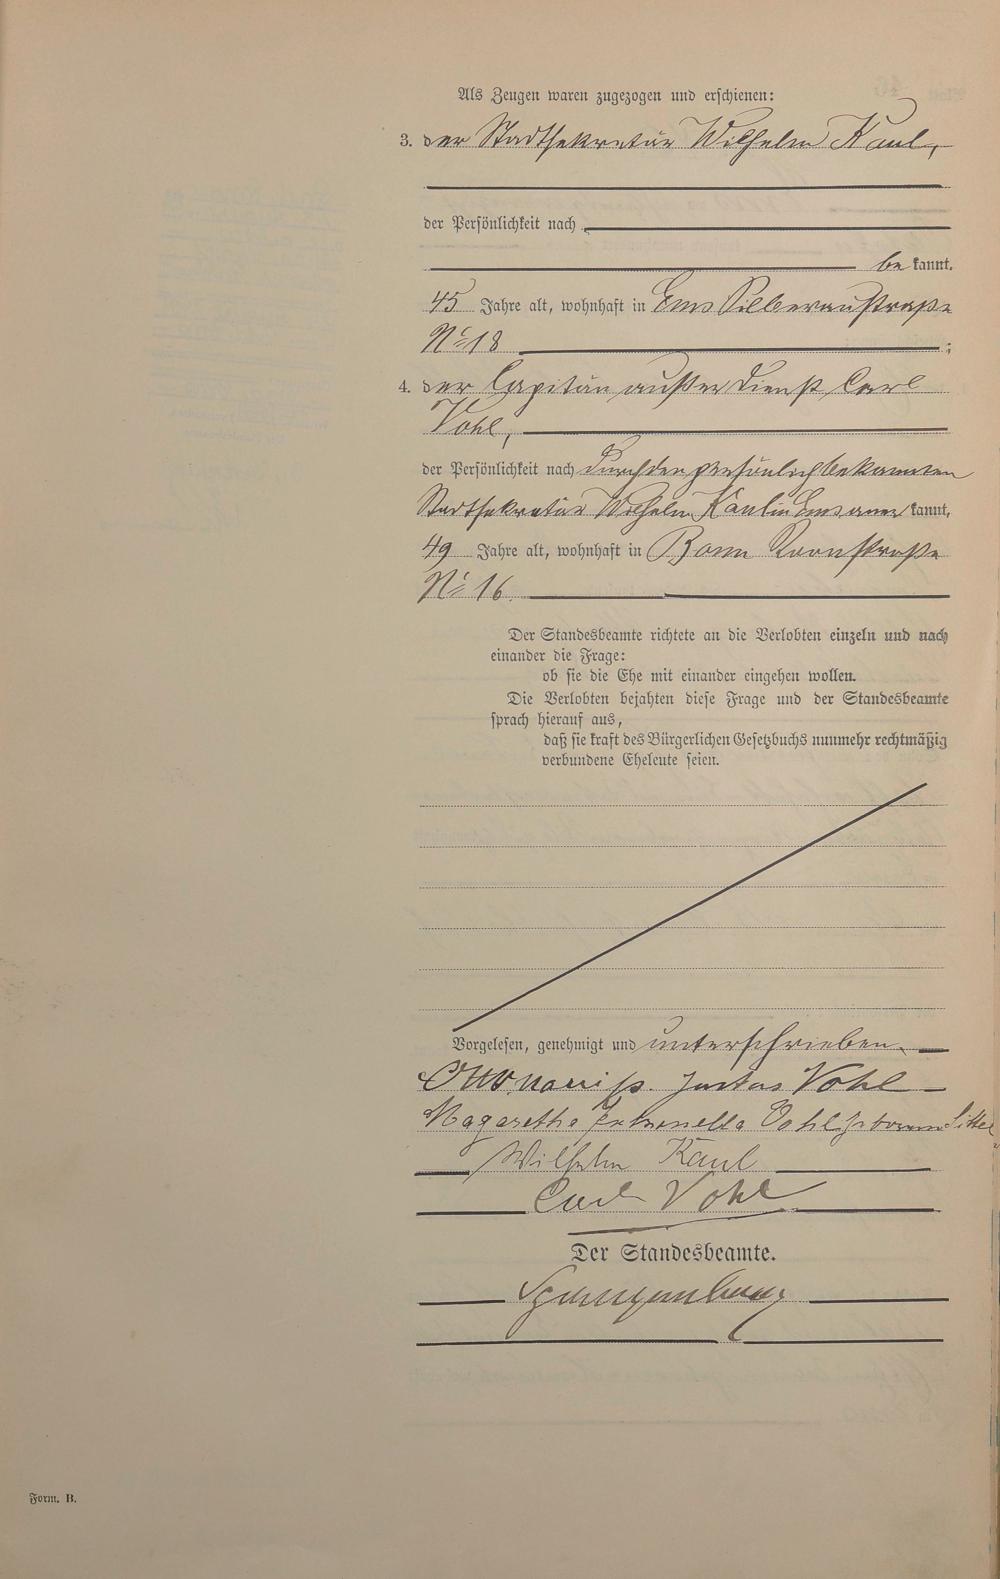 Als Zeugen waren zugezogen und erschienen:
3. der Stadtsekretär Wilhelm Kaul,
der Persönlichkeit nach
be kannt,
45 Jahre alt, wohnhaft in Ems Silberaustraße
No 18 ;
4. der Capitän außer Dienst Carl
Vohl,
der Persönlichkeit nach durch den persönlich bekannten
Stadtsekretär Wilhelm Kaul in Ems aner kannt,
49 Jahre alt, wohnhaft in Bonn Roonstraße
No 16.
Der Standesbeamte richtete an die Verlobten einzeln und nach
einander die Frage:
ob sie die Ehe mit einander eingehen wollen.
Die Verlobten bejahten diese Frage und der Standesbeamte
sprach hierauf aus,
daß sie kraft des Bürgerlichen Gesetzbuchs nunmehr rechtmäßig
verbundene Eheleute seien.
Vorgelesen, genehmigt und unterschrieben.
Otto Justus Vohl
Magarethe Petronella Vohl geborene
Wilhelm Kaul
Carl Vohl
Der Standesbeamte.
Spangenberg
Form. B.